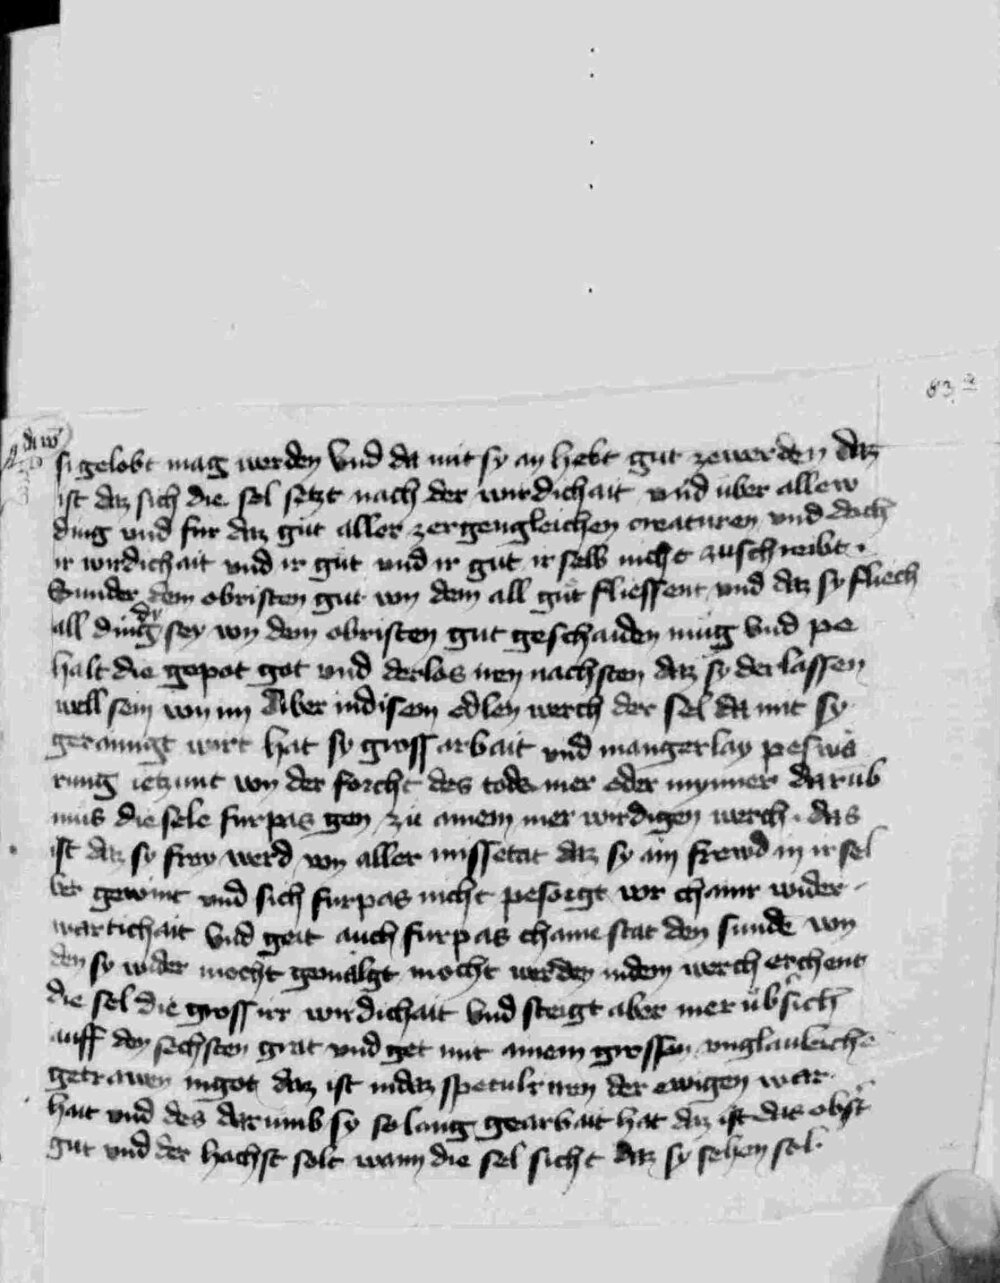 83
si gelobt mag werden vnd da mit sy an hebt gut zewerden daz
ist daz sich die sel setzt nach der wirdichait vnd über allew
ding vnd fur daz gut aller zergengleichen creaturen vnd doch
ir wirdichait vnd ir gut vnd ir gut ir selb nicht zuschreibt.
Sunder dem obristen gut von dem all gut fliessent vnd daz sy fliech
all ding sey von dem obristen gut geschaiden mug vnd pe
halt die gepot got vnd nachsten daz sy der lassen
well sein von im Aber in disem edlen werch der sel da mit sy
gerainigt wirt hat sy gross arbait vnd mangerlay peswä
rung ietzunt von der forcht des tods mer oder mynner darüb
mus die sele furpas gen zu ainem mer wirdigen werch. das
ist daz sy frey werd von aller missetat daz sy ain frewd in ir sel
ber gewint vnd sich furpas nicht pesorgt vor chainr wider
wärtichait vnd geit auch furpas chaine stat den sunde von
den sy wider mocht gemaligt mocht werden in dem werch erchent
die sel die gross irr wirdichait vnd steigt aber mer über sich
auff den sechsten grat vnd get mit ainem grossen vnglaubiche
getrawen in got daz ist in daz speculiren der ewigen war
hait vnd des darumb sy so lang gearbait hat daz ist das obst
gut vnd der hachst wann die sel sicht daz sy sehen sol.